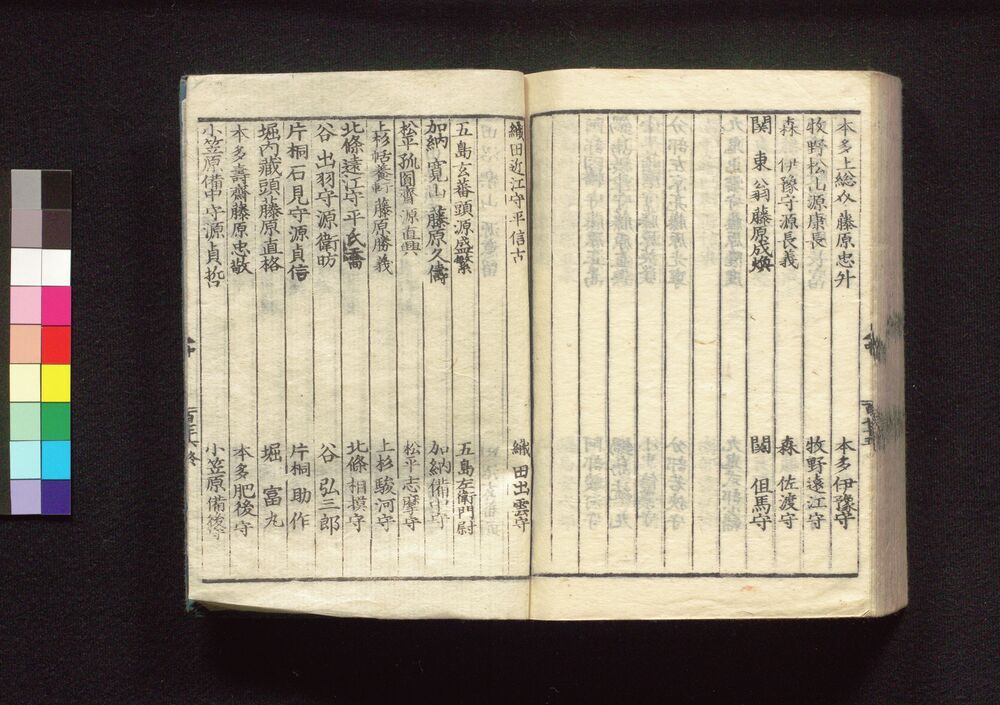 本多上総介 藤原忠升 本多伊豫守
牧野松山源康長 牧野遠江守
森 伊豫守源長義 森 佐渡守
関 東翁藤原成煥 関 但馬守
織田近江守平信古 織田出雲守
五島玄蕃頭源盛繁 五島左衛門尉
加納寛山藤原久儔 加納備中守
松平 圓齋源直興 松平志摩守
上杉恬養軒藤原勝義 上杉駿河守
北條遠江守平氏喬 北條相摸守
谷 出羽守源衛昉 谷 弘三郎
片桐石見守源貞信 片桐助作
堀内蔵頭藤原直格 堀 富丸
本多壽齋藤原忠敬 本多肥後守
小笠原備中守源貞哲 小笠原備後守